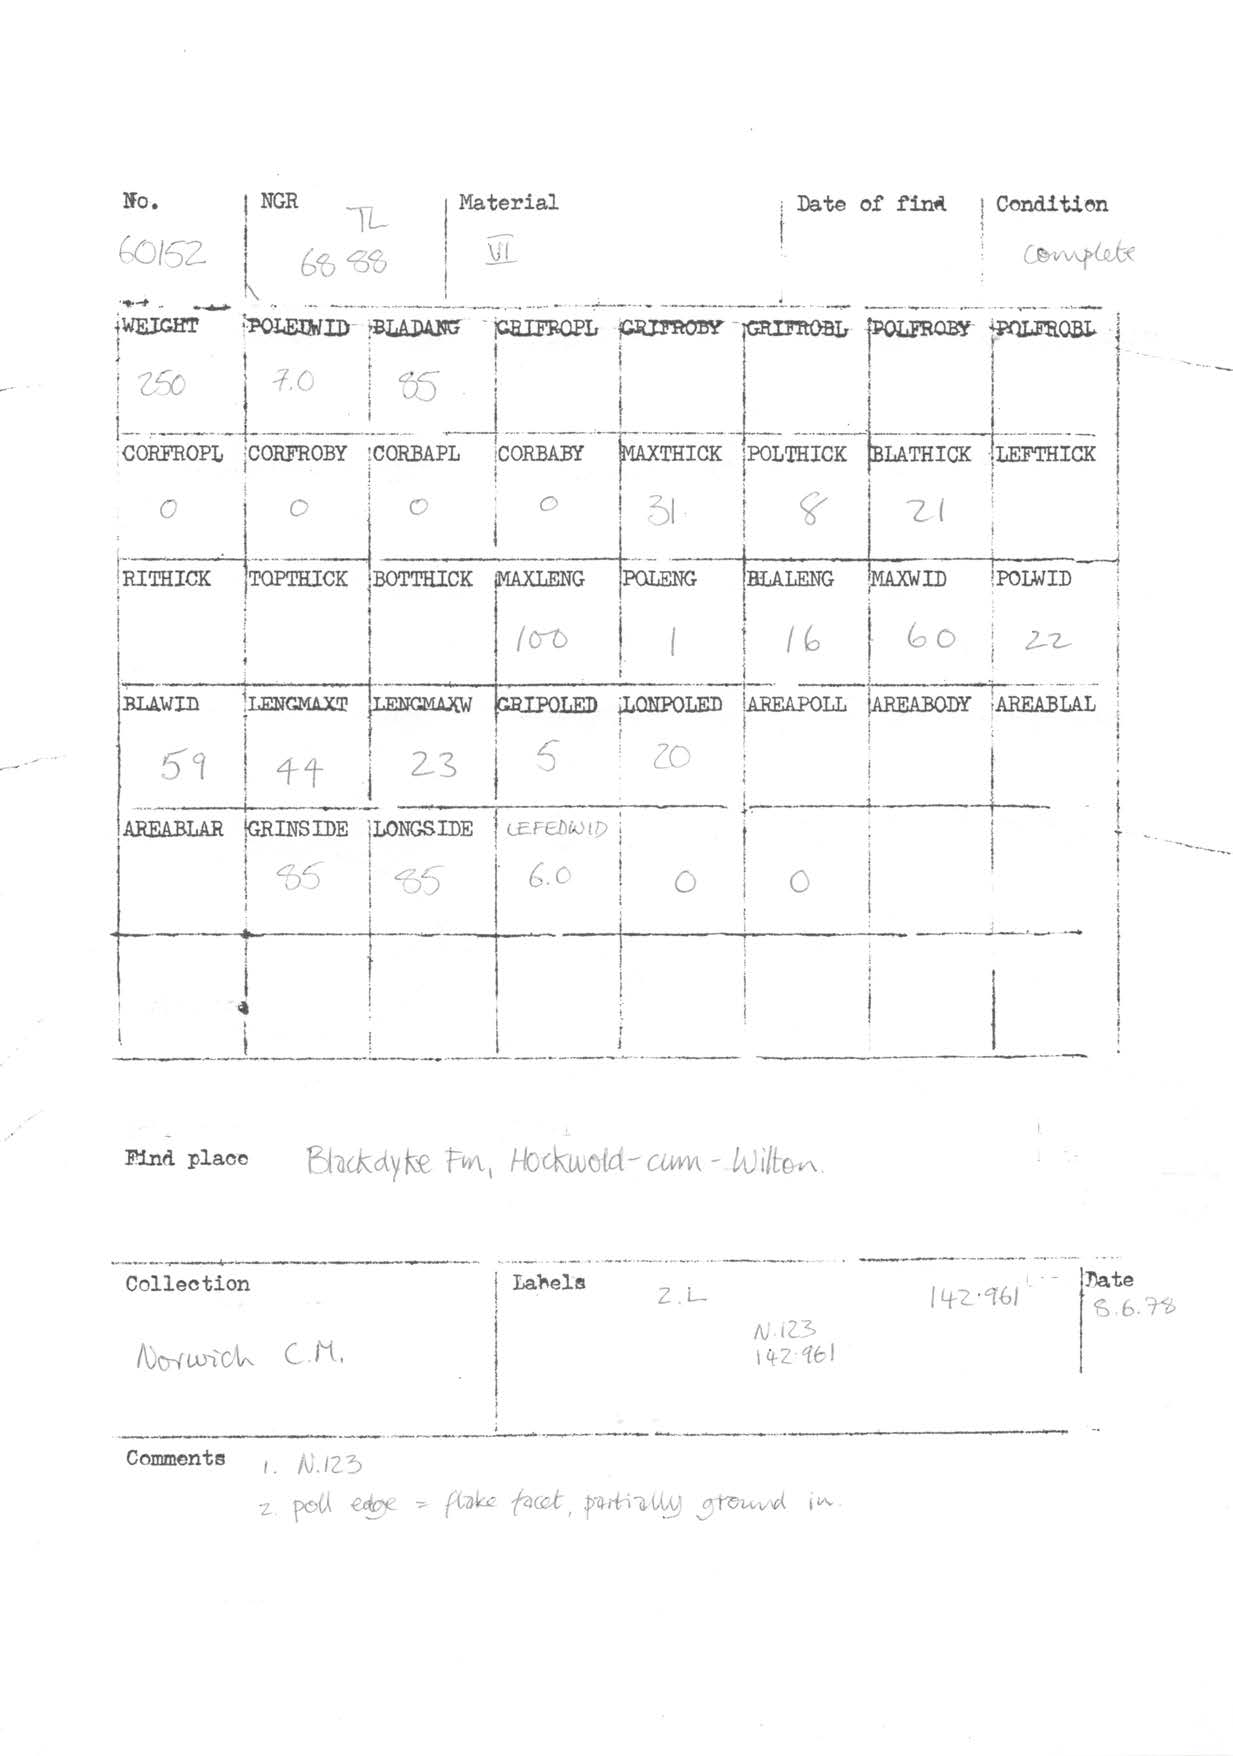 No. NGR Material Date of find Condition
60152 TL 68 88 VI complete
WEIGHT POLEDWID BLADANG GRIFROPL GRIFROBY GRIFROBL POLFROBY POLFROBL
250 7.0 85
CORFROPL CORFROBY CORBAPL CORBABY MAXTHICK POLTHICK BLATHICK LEFTHICK
0 0 0 0 31 8 21
RITHICK TOPTHICK BOTTHICK MAXLENG POLENG BLALENG MAXWID POLWID
100 1 16 60 22
BLAWID LENGMAXT LENGMAXW GRIPOLED LONPOLED AREAPOLL AREABODY AREABLAL
59 44 23 5 20
AREABLAR GRINSIDE LONGSIDE LEFEDWID
85 85 6.0 0 0
Find place Blackdyke Fm, Hockwold-cum-Wilton.
Collection Labels 2.L 142.961 Date
8.6.78
N.123
Norwich C.M. 142.961
Comments 1. N.123
2. poll edge = flake facet, partially ground in.